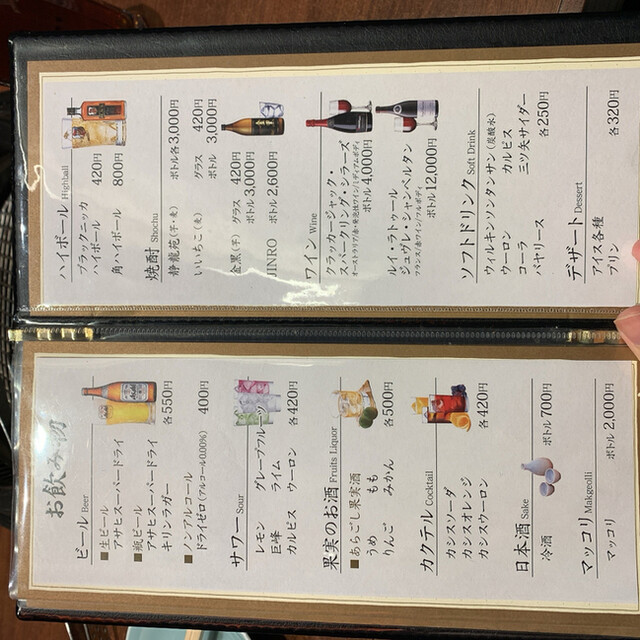 お飲み物
ビール Beer
■生ビール
アサヒスーパードライ
■瓶ビール
アサヒスーパードライ
キリンラガー 各550円
■ノンアルコール
ドライゼロ(アルコール0.00%) 400円
サワー Sour
レモン グレープフルーツ
巨峰 ライム
カルピス ウーロン 各420円
果実のお酒 Fruits Liquor
■あらごし果実酒
うめ もも
りんご みかん 各500円
カクテル Cocktail
カシスソーダ
カシスオレンジ
カシスウーロン 各420円
日本酒 Sake
冷酒 ボトル 700円
マッコリ Makgeolli
マッコリ ボトル 2,000円
ハイボール Highball
ブラックニッカ
ハイボール 420円
角ハイボール 800円
焼酎 Shochu
静龍苑(芋・麦) ボトル各3,000円
いいちこ(麦) グラス 420円
ボトル 3,000円
金黒(芋) グラス 420円
ボトル 3,000円
JINRO ボトル 2,600円
ワイン Wine
クラッカージャック・
スパークリング・シラーズ
オーストラリア/赤・発泡性ワイン/ミディアムボディ
ボトル 4,000円
ルイ・ラトゥール
ジュヴレ・シャンベルタン
フランス/赤ワイン/フルボディ
ボトル 12,000円
ソフトドリンク Soft Drink
ウィルキンソンタンサン(炭酸水)
ウーロン カルピス
コーラ 三ツ矢サイダー
バヤリース 各250円
デザート Dessert
アイス各種
プリン 各320円